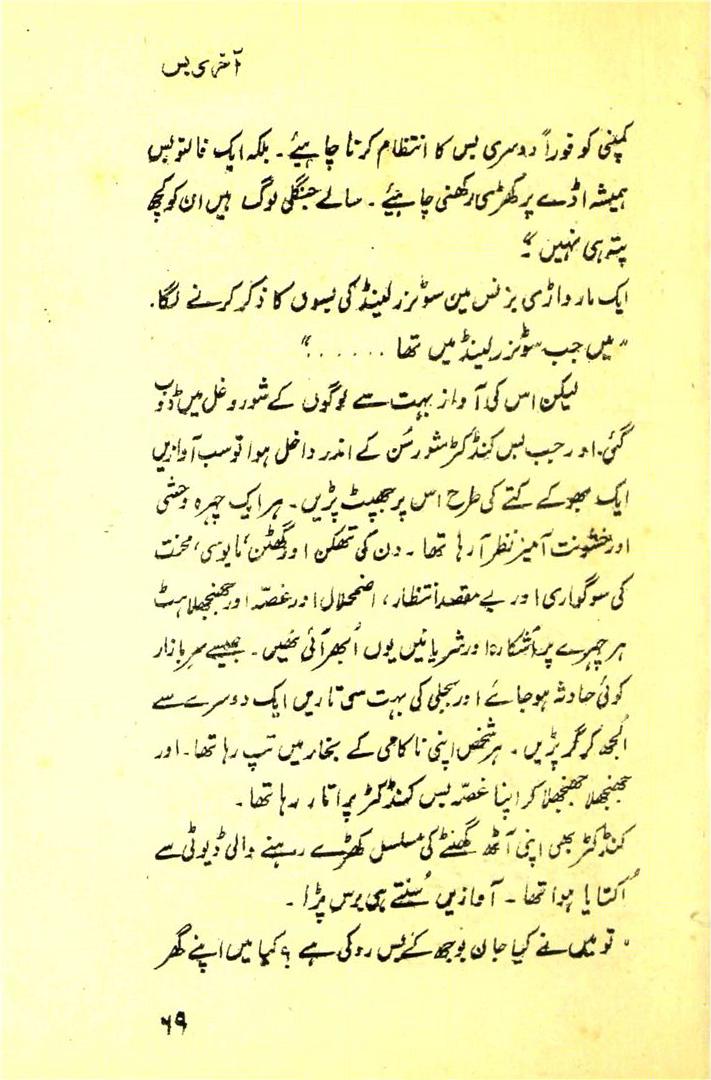 آخری بس
کمپنی کو فوراً دوسری بس کا انتظام کرنا چاہیئے۔ بلکہ ایک فالتو بس
ہمیشہ اڈے پر کھڑی رکھنی چاہیئے۔ سالے جنگلی لوگ ہیں ان کو کچھ
پتہ ہی نہیں۔"
ایک مارواڑی بزنس مین سوئزرلینڈ کی بسوں کا ذکر کرنے لگا.
"میں جب سوئزرلینڈ میں تھا ......"
لیکن اس کی آواز بہت سے لوگوں کے شور و غل میں ڈوب
گئی۔ اور جب بس کنڈکٹر شور سُن کے اندر داخل ہوا تو سب آوازیں
ایک بھوکے کتے کی طرح اس پر جھپٹ پڑیں۔ ہر ایک چہرہ وحشی
اور خشونت آمیز نظر آرہا تھا۔ دن کی تھکن اور گھٹن، مایوسی، محنت
کی سوگواری اور بے مقصد انتظار، اضمحلال اور غصّہ اور جھنجھلاہٹ
ہر چہرے پر آشکارہ اور شریانیں یوں اُبھر آئی تھیں۔ جیسے سربازار
کوئی حادثہ ہو جائے اور بجلی کی بہت سی تاریں ایک دوسرے سے
اُلجھ کر گر پڑیں۔ ہر شخص اپنی ناکامی کے بخار میں تپ رہا تھا۔ اور
جھنجھلا جھنجھلا کر اپنا غصّہ بس کنڈکٹر پر اتار رہا تھا۔
کنڈکٹر بھی اپنی آٹھ گھنٹے کی مسلسل کھڑے رہنے والی ڈیوٹی سے
اُکتایا ہوا تھا۔ آوازیں سُنتے ہی برس پڑا۔
"تو میں نے کیا جان بوجھ کے بس روکی ہے؟ کیا میں اپنے گھر
۶۹